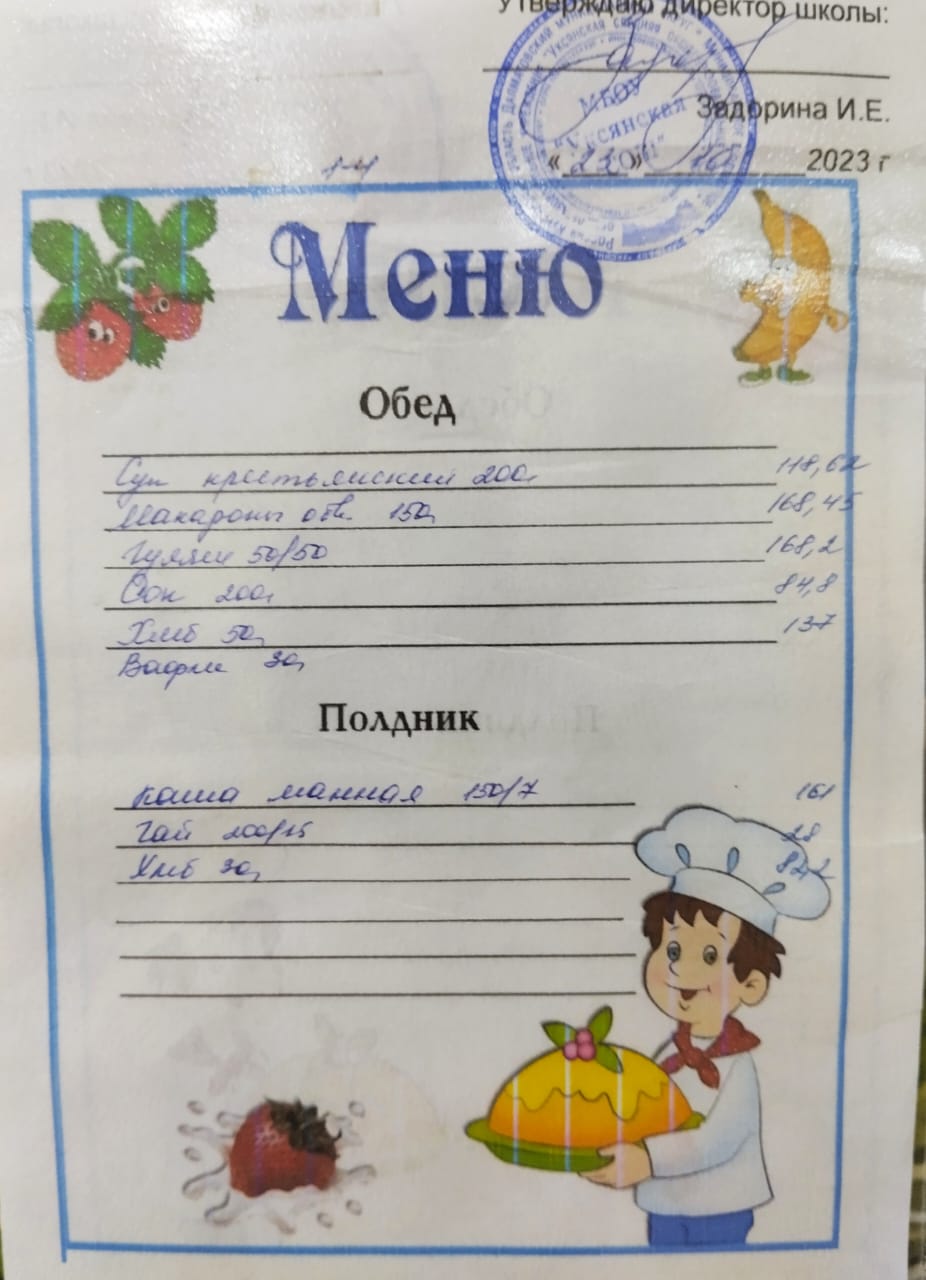 Утверждаю директор школы:
Задорина И.Е.
МБОУ
"Уксянская
СОШ"
« 23 » 10 2023 г
1-4
Меню
Обед
Суп крестьянский 200г 118,62
Макароны отв. 150г 168,45
Гуляш 50/50 168,2
Сок 200г 84,8
Хлеб 50г 137
Вафли 30г
Полдник
каша манная 150/7 161
Чай 200/15 28
Хлеб 30г 82,2